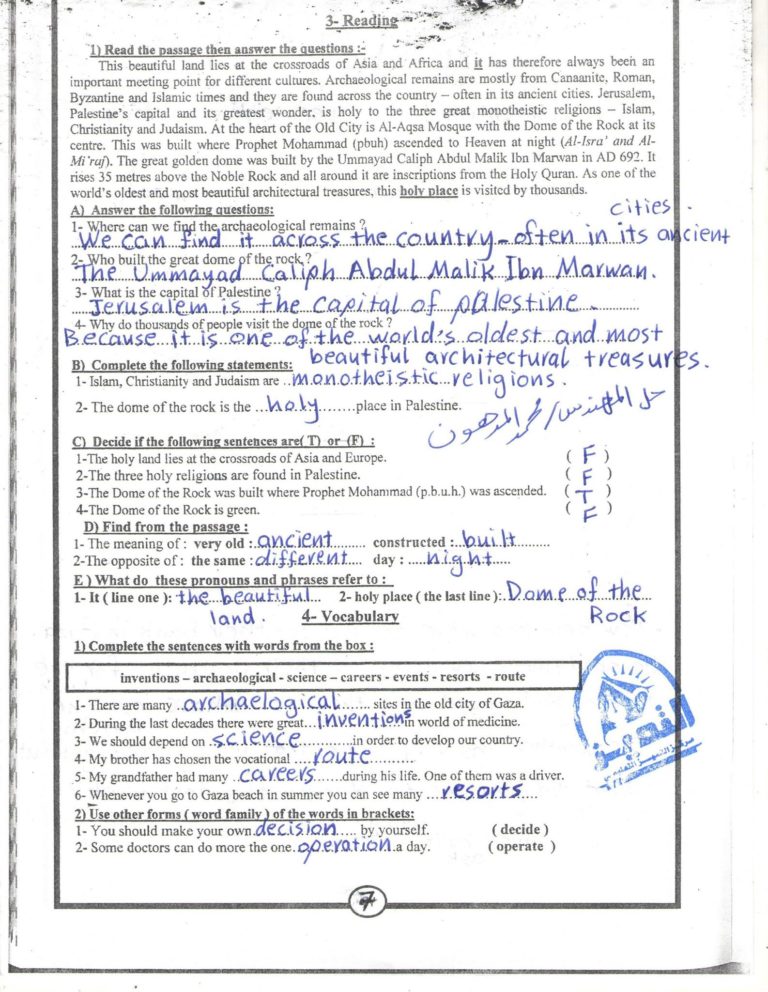 3- Reading
1) Read the passage then answer the questions :-
This beautiful land lies at the crossroads of Asia and Africa and it has therefore always been an
important meeting point for different cultures. Archaeological remains are mostly from Canaanite, Roman,
Byzantine and Islamic times and they are found across the country – often in its ancient cities. Jerusalem,
Palestine's capital and its greatest wonder, is holy to the three great monotheistic religions – Islam,
Christianity and Judaism. At the heart of the Old City is Al-Aqsa Mosque with the Dome of the Rock at its
centre. This was built where Prophet Mohammad (pbuh) ascended to Heaven at night (Al-Isra' and Al-
Mi'raj). The great golden dome was built by the Ummayad Caliph Abdul Malik Ibn Marwan in AD 692. It
rises 35 metres above the Noble Rock and all around it are inscriptions from the Holy Quran. As one of the
world's oldest and most beautiful architectural treasures, this holy place is visited by thousands.
A) Answer the following questions:
1- Where can we find the archaeological remains ?
We can find it across the country - often in its ancient cities.
2- Who built the great dome of the rock ?
The Ummayad Caliph Abdul Malik Ibn Marwan.
3- What is the capital of Palestine ?
Jerusalem is the capital of palestine.
4- Why do thousands of people visit the dome of the rock ?
Because it is one of the world's oldest and most
beautiful architectural treasures.
B) Complete the following statements:
1- Islam, Christianity and Judaism are ..monotheistic religions.
2- The dome of the rock is the ...holy........place in Palestine.
حل المهندس / محمد المدهون
C) Decide if the following sentences are( T) or (F) :
1-The holy land lies at the crossroads of Asia and Europe. ( F )
2-The three holy religions are found in Palestine. ( F )
3-The Dome of the Rock was built where Prophet Mohammad (p.b.u.h.) was ascended. ( T )
4-The Dome of the Rock is green. ( F )
D) Find from the passage :
1- The meaning of : very old : ancient......... constructed :..built.........
2-The opposite of : the same : different.... day : .....night.....
E ) What do these pronouns and phrases refer to :
1- It ( line one ): the beautiful... 2- holy place ( the last line ): Dome of the
land. Rock
4- Vocabulary
1) Complete the sentences with words from the box :
inventions – archaeological - science – careers - events - resorts - route
1- There are many ..archaelogical....... sites in the old city of Gaza.
2- During the last decades there were great...inventions in world of medicine.
3- We should depend on .science............in order to develop our country.
4- My brother has chosen the vocational ....route...........
5- My grandfather had many ..careers.......during his life. One of them was a driver.
6- Whenever you go to Gaza beach in summer you can see many ...resorts....
2) Use other forms ( word family ) of the words in brackets:
1- You should make your own.decision..... by yourself. ( decide )
2- Some doctors can do more the one.operation.a day. ( operate )
7